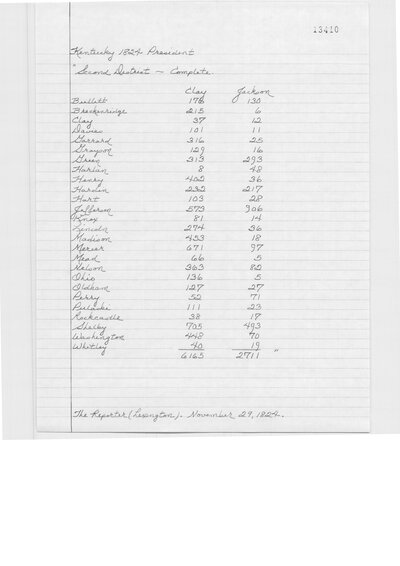 13410
Kentucky 1824 President
"Second District — Complete.
Clay Jackson
Bullett 178 130
Breckenridge 215 6
Clay 37 12
Davies 101 11
Garrard 316 25
Grayson 129 16
Green 313 293
Harlan 8 48
Henry 402 36
Hardin 232 217
Hart 103 28
Jefferson 573 906
Knox 81 14
Lincoln 294 36
Madison 453 18
Mercer 671 97
Mead 66 5
Nelson 363 82
Ohio 136 5
Oldham 127 27
Perry 52 71
Pulaski 111 23
Rockcastle 38 17
Shelby 705 493
Washington 448 70
Whitley 40 19
6165 2711 "
The Reporter (Lexington). November 29, 1824.